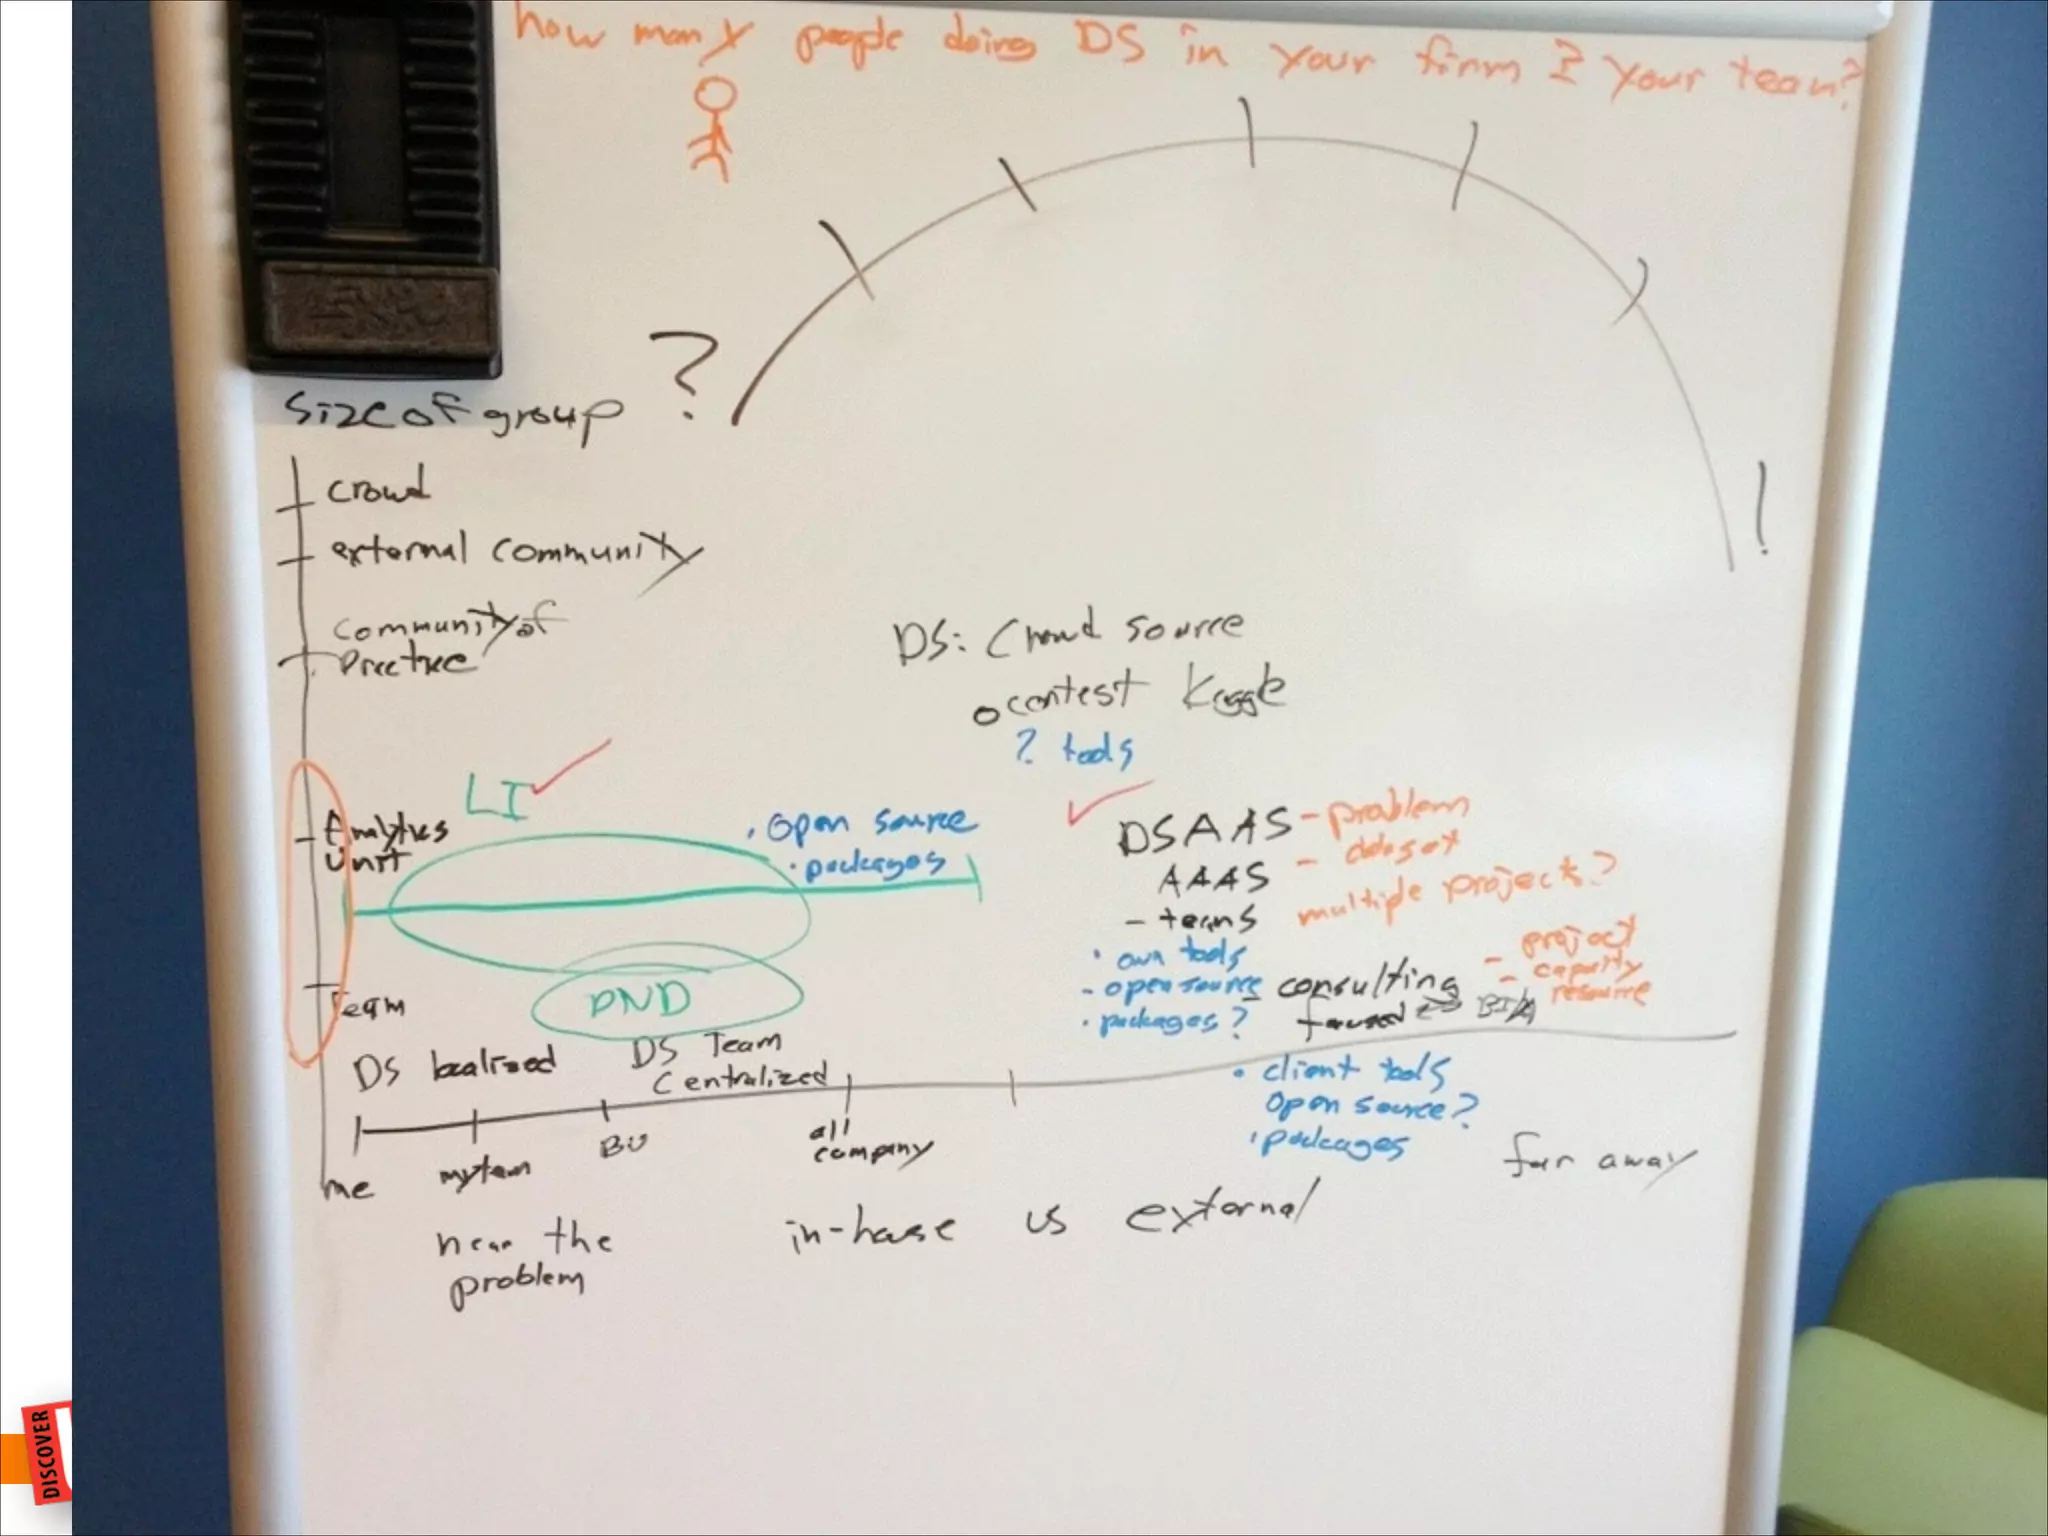 how many people doing DS in your firm & your team?
?
size of group
crowd
external community
community of
Practice
!
DS: Crowd source
contest Kaggle
? tools
LI
Analytics
Unit
• open source
• packages
DSAAS
AAAS
- teams
- problem
- dataset
multiple projects?
• own tools
- open source
• packages?
- consulting
focused
- project
- capacity
- resource
PND
Team
DS localized
DS Team
Centralized
• client tools
open source?
• packages
me
my team
BU
all
company
far away
near the
problem
in-house vs external
DISCOVER